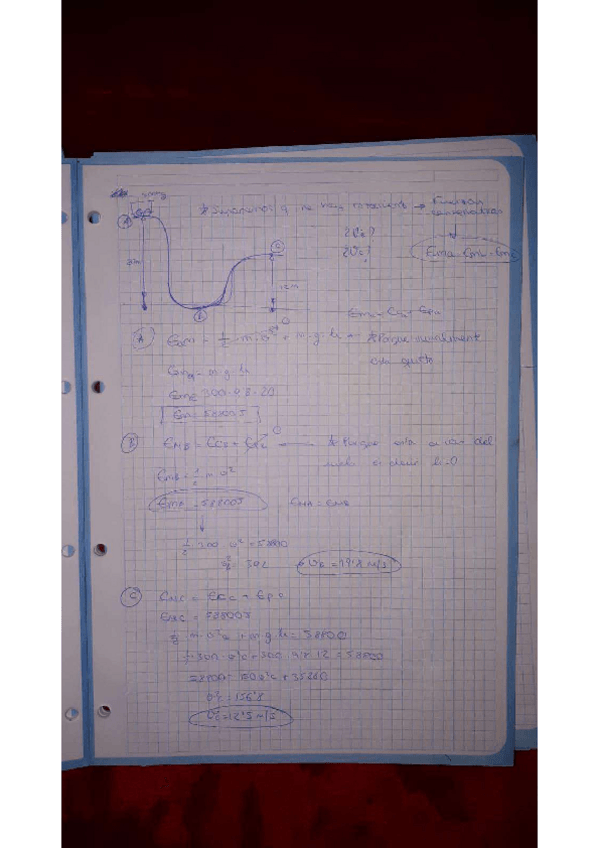 A
* Suponemos q no hay rozamiento → Fuerzas conservativas
¿VB?
¿VC?
EMA = EMB = EMC
C
12m
B
EM = EC + EP
A
EMA = 1/2 · m · v² + m · g · h → * Porque inicialmente está quieto
0
EMA = m · g · h
EMA = 300 · 9'8 · 20
EM = 58800J
B
EMB = ECB + EPB → * Porque está a ras del suelo es decir h=0
0
EMB = 1/2 m v²
EMA = 58800J
EMA = EMB
1/2 · 300 · v² = 58800
v² = 392
VB = 19'8 m/s
C
EMC = ECC + EPC
EMC = 58800J
1/2 m · v²C + m · g · h = 58800
1/2 · 300 · v²C + 300 · 9'8 · 12 = 58800
58800 = 150 v²C + 35280
v²C = 156'8
VC = 12'5 m/s